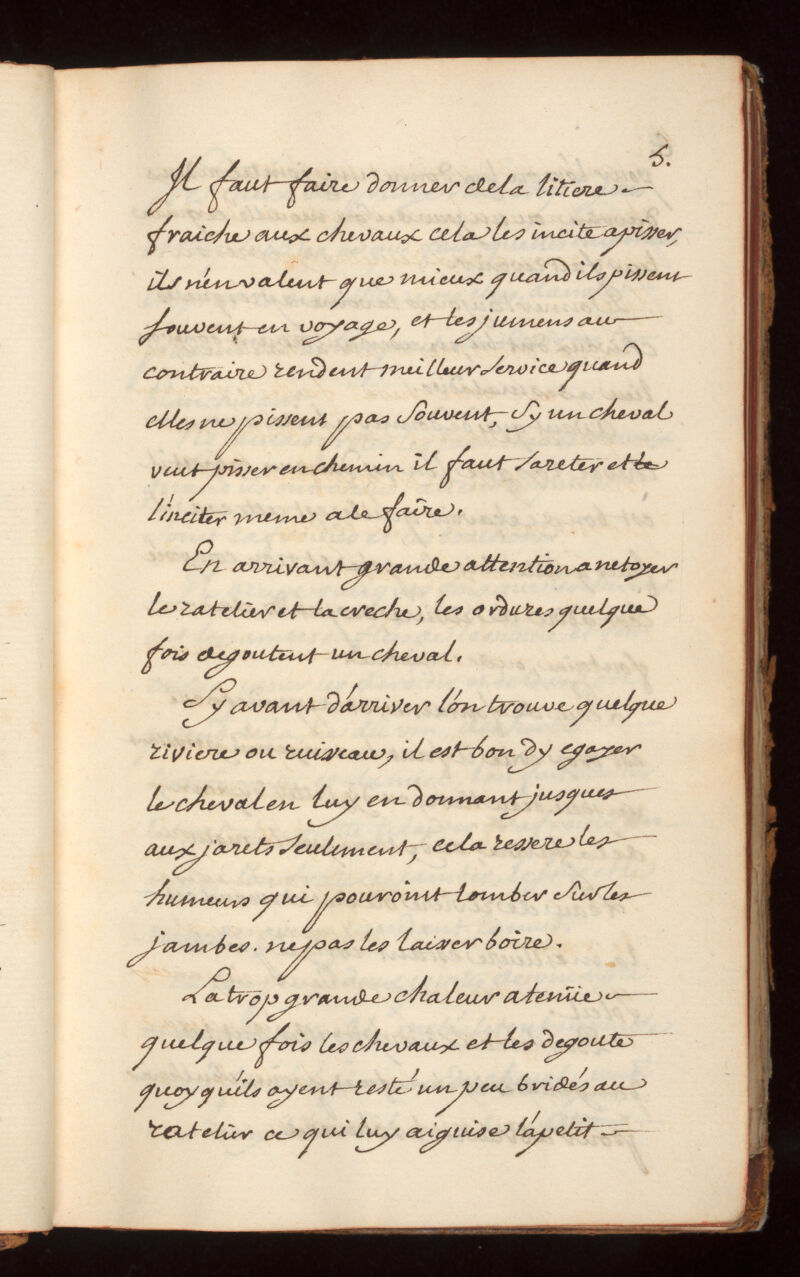 5.
Il faut faire donner de la litiere
fraiche aux chevaux cela les incite a pisser,
ils n'en valent que mieux quand ils pissent
souvent en voyage, et les jumens au
contraire rendent meilleur service quand
elles ne pissent pas souvent, sy un cheval
veut pisser en chemin il faut sareter et le
l'inciter meme a le faire.
En arrivant grande attention a netoyer
le ratelier et la creche, les ordures quelque
fois degoutent un cheval.
Sy avant d'arriver l'on trouve quelque
riviere ou ruisseau, il est bon dy egayer
le cheval en luy en donnant jusques
aux jarets seulement, cela ressere les
humeurs qui pouroint tomber sur les
jambes. ne pas les laisser boire.
La trop grande chaleur atenüe
quelque fois les chevaux et les degoute
quoy qu'ils ayent resté un peu bridés au
ratelier ce qui luy aiguise l'apetit